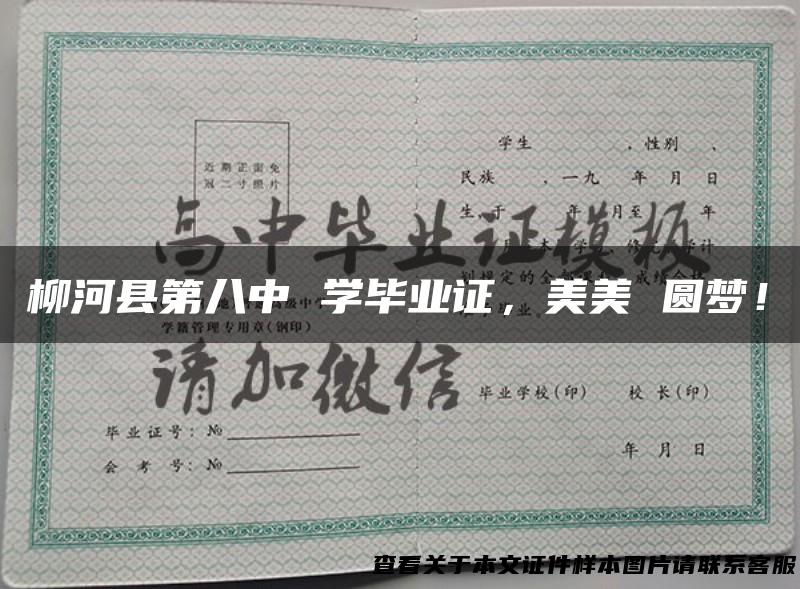 学生 ，性别 、
近期正面免
冠二寸照片
民族 、一九 年 月 日
生，于 年 月至 年
高中毕业证模板
柳河县第八中 学毕业证，美美 圆梦！
学籍管理专用章(钢印)
毕业。
请加微信
毕业学校(印) 校 长(印)
毕业证号：№
年 月 日
会 考 号：№
查看关于本文证件样本图片请联系客服